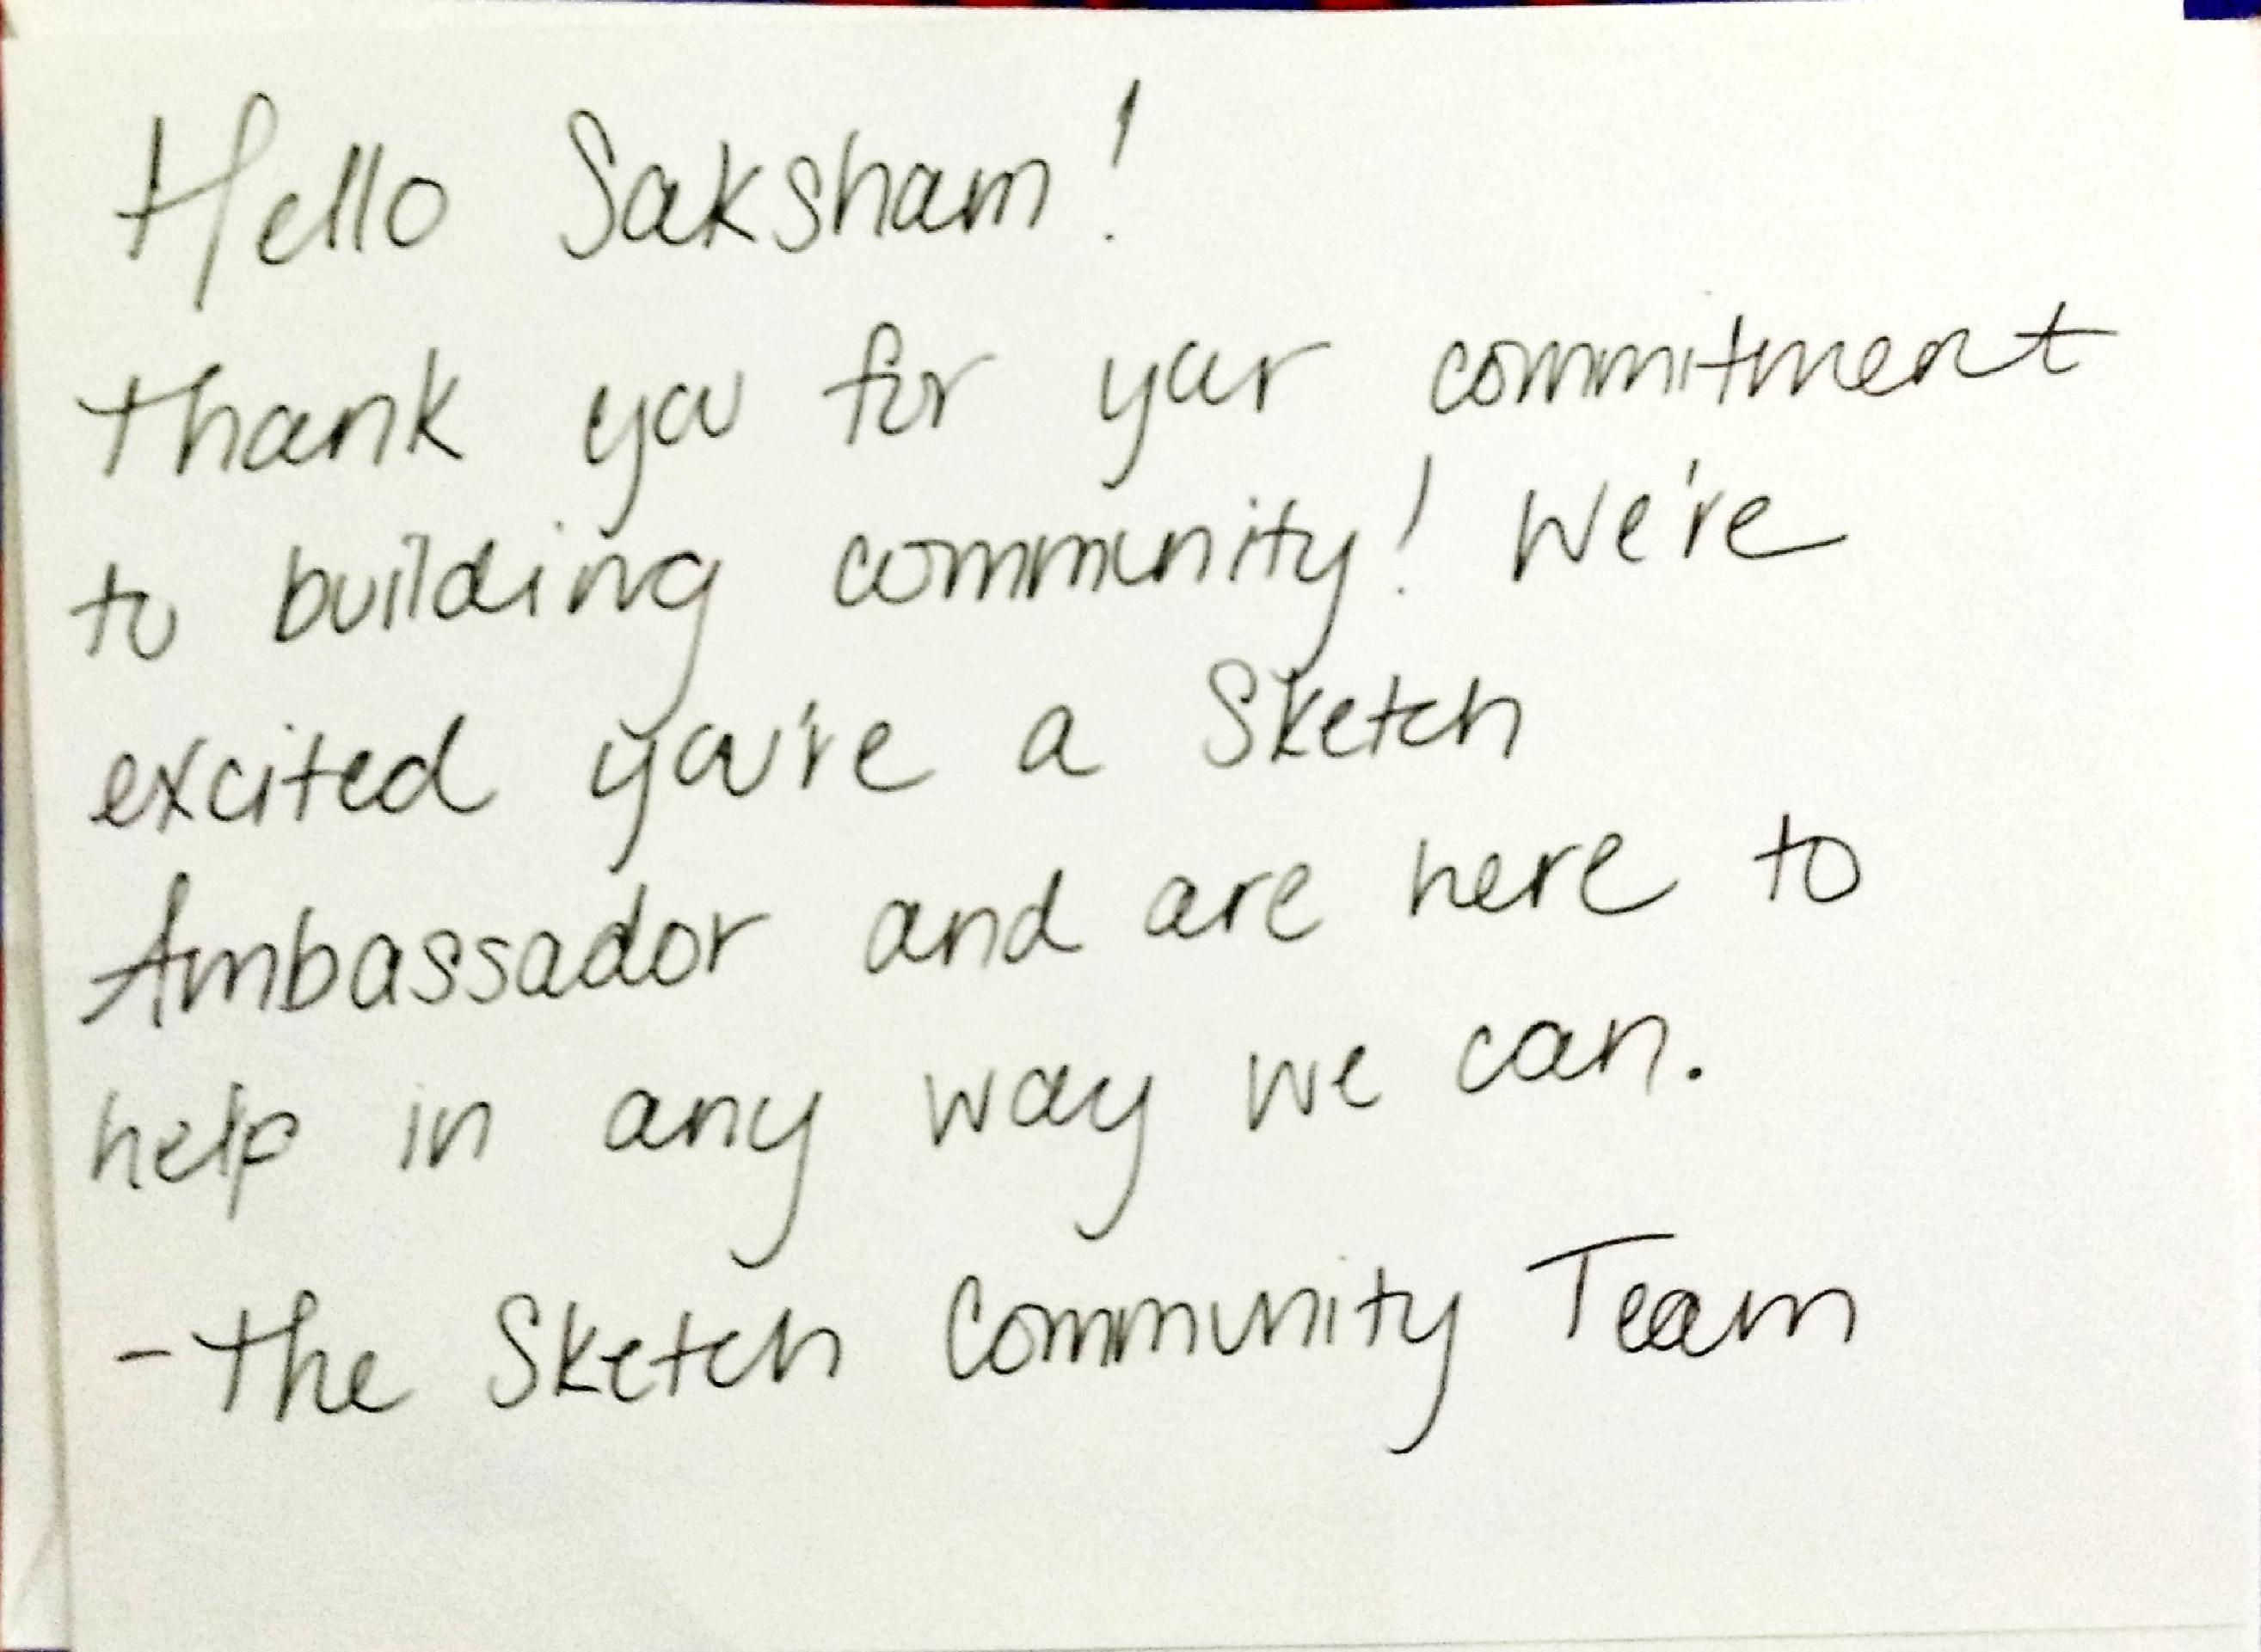 Hello Saksham!
Thank you for your commitment
to building community! We're
excited you're a Sketch
Ambassador and are here to
help in any way we can.
- The Sketch Community Team